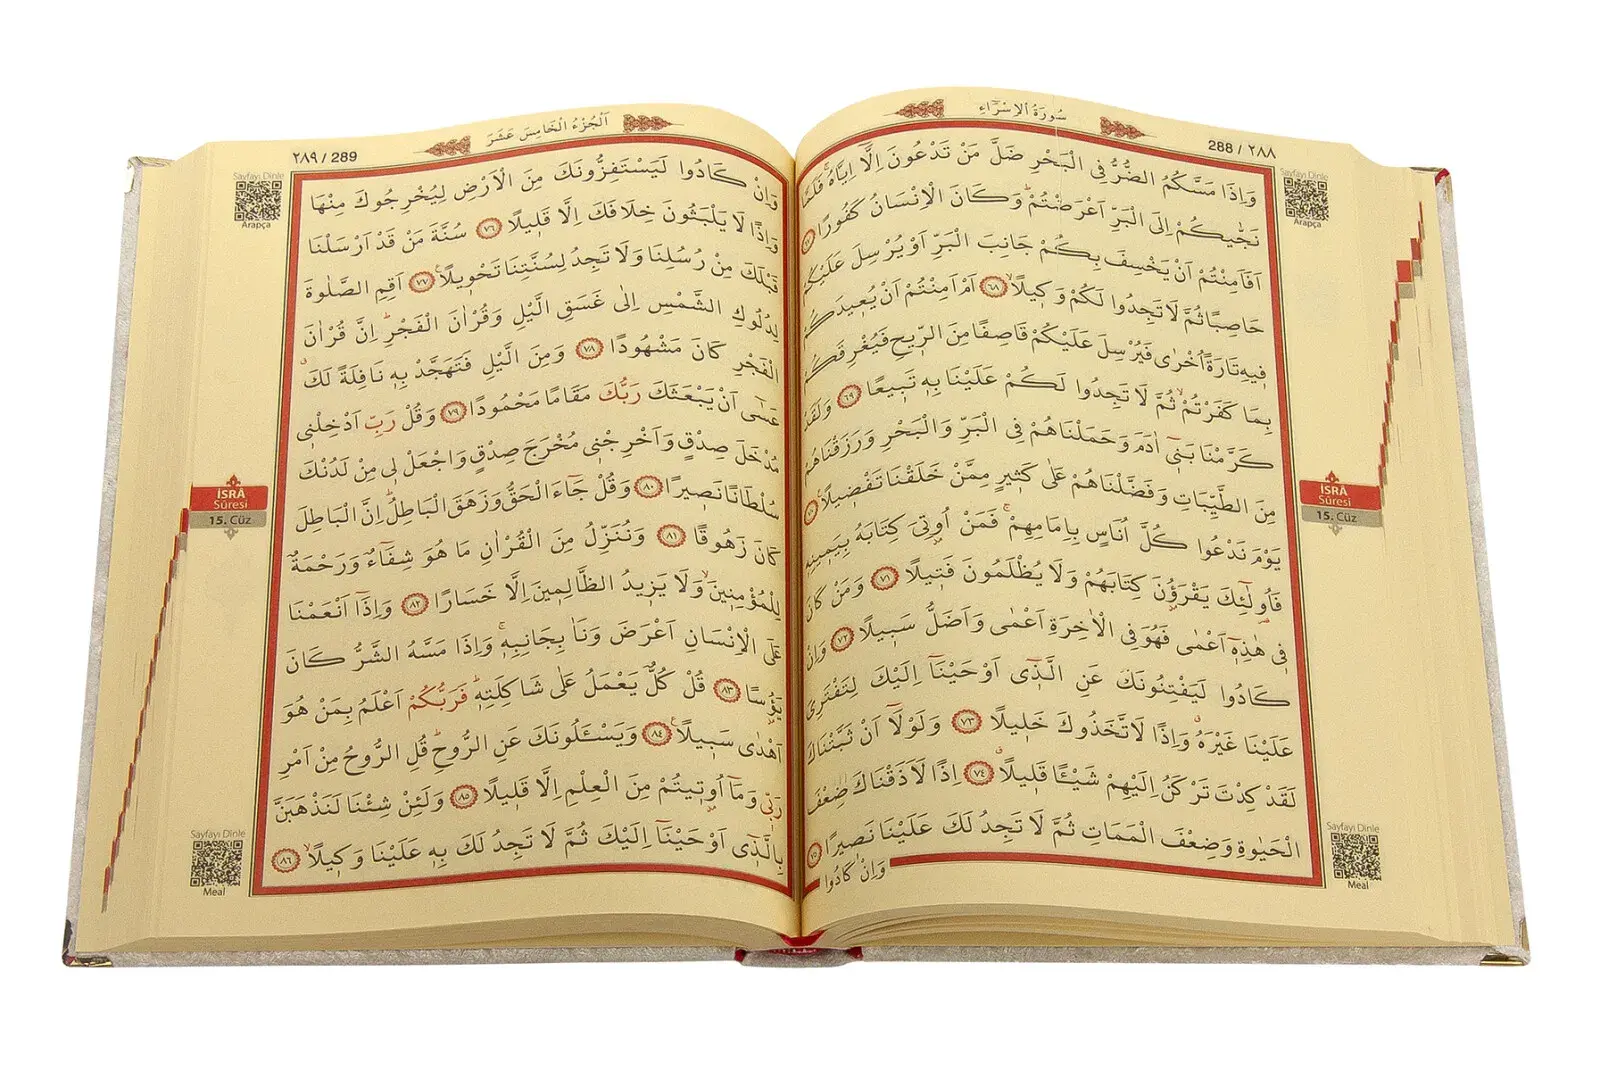 288 / ٢٨٨
سُورَةُ الْاِسْرَٓاءِ
Sayfayı Dinle
Arapça
وَاِذَا مَسَّكُمُ الضُّرُّ فِي الْبَحْرِ ضَلَّ مَنْ تَدْعُونَ اِلَّٓا اِيَّاهُۚ فَلَمَّا
نَجّٰيكُمْ اِلَى الْبَرِّ اَعْرَضْتُمْۜ وَكَانَ الْاِنْسَانُ كَفُورًا ﴿٦٧﴾
اَفَاَمِنْتُمْ اَنْ يَخْسِفَ بِكُمْ جَانِبَ الْبَرِّ اَوْ يُرْسِلَ عَلَيْكُمْ
حَاصِبًا ثُمَّ لَا تَجِدُوا لَكُمْ وَكِيلًاۙ ﴿٦٨﴾ اَمْ اَمِنْتُمْ اَنْ يُعِيدَكُمْ
فِيهِ تَارَةً اُخْرٰى فَيُرْسِلَ عَلَيْكُمْ قَاصِفًا مِنَ الرِّيحِ فَيُغْرِقَكُمْ
بِمَا كَفَرْتُمْۙ ثُمَّ لَا تَجِدُوا لَكُمْ عَلَيْنَا بِهِ تَبِيعًا ﴿٦٩﴾ وَلَقَدْ
كَرَّمْنَا بَنِٓي اٰدَمَ وَحَمَلْنَاهُمْ فِي الْبَرِّ وَالْبَحْرِ وَرَزَقْنَاهُمْ
مِنَ الطَّيِّبَاتِ وَفَضَّلْنَاهُمْ عَلٰى كَثِيرٍ مِمَّنْ خَلَقْنَا تَفْضِيلًا۟ ﴿٧٠﴾
يَوْمَ نَدْعُوا كُلَّ اُنَاسٍ بِاِمَامِهِمْۚ فَمَنْ اُو۫تِيَ كِتَابَهُ بِيَمِينِهِ
فَاُو۬لٰٓئِكَ يَقْرَؤُ۫نَ كِتَابَهُمْ وَلَا يُظْلَمُونَ فَتِيلًا ﴿٧١﴾ وَمَنْ كَانَ
فِي هٰذِهِٓ اَعْمٰى فَهُوَ فِي الْاٰخِرَةِ اَعْمٰى وَاَضَلُّ سَبِيلًا ﴿٧٢﴾ وَاِنْ
كَادُوا لَيَفْتِنُونَكَ عَنِ الَّذِٓي اَوْحَيْنَٓا اِلَيْكَ لِتَفْتَرِيَ
عَلَيْنَا غَيْرَهُۗ وَاِذًا لَاتَّخَذُوكَ خَلِيلًا ﴿٧٣﴾ وَلَوْلَٓا اَنْ ثَبَّتْنَاكَ
لَقَدْ كِدْتَ تَرْكَنُ اِلَيْهِمْ شَيْـًٔا قَلِيلًاۗ ﴿٧٤﴾ اِذًا لَاَذَقْنَاكَ ضِعْفَ
الْحَيٰوةِ وَضِعْفَ الْمَمَاتِ ثُمَّ لَا تَجِدُ لَكَ عَلَيْنَا نَصِيرًا ﴿٧٥﴾
وَاِنْ كَادُوا
İSRÂ
Sûresi
15. Cüz
Sayfayı Dinle
Meal
٢٨٩ / 289
اَلْجُزْءُ الْخَامِسَ عَشَرَ
Sayfayı Dinle
Arapça
وَاِنْ كَادُوا لَيَسْتَفِزُّونَكَ مِنَ الْاَرْضِ لِيُخْرِجُوكَ مِنْهَا
وَاِذًا لَا يَلْبَثُونَ خِلَافَكَ اِلَّا قَلِيلًا ﴿٧٦﴾ سُنَّةَ مَنْ قَدْ اَرْسَلْنَا
قَبْلَكَ مِنْ رُسُلِنَا وَلَا تَجِدُ لِسُنَّتِنَا تَحْوِيلًا۟ ﴿٧٧﴾ اَقِمِ الصَّلٰوةَ
لِدُلُوكِ الشَّمْسِ اِلٰى غَسَقِ الَّيْلِ وَقُرْاٰنَ الْفَجْرِۜ اِنَّ قُرْاٰنَ
الْفَجْرِ كَانَ مَشْهُودًا ﴿٧٨﴾ وَمِنَ الَّيْلِ فَتَهَجَّدْ بِهِ نَافِلَةً لَكَۗ
عَسٰٓى اَنْ يَبْعَثَكَ رَبُّكَ مَقَامًا مَحْمُودًا ﴿٧٩﴾ وَقُلْ رَبِّ اَدْخِلْنِي
مُدْخَلَ صِدْقٍ وَاَخْرِجْنِي مُخْرَجَ صِدْقٍ وَاجْعَلْ لِي مِنْ لَدُنْكَ
سُلْطَانًا نَصِيرًا ﴿٨٠﴾ وَقُلْ جَٓاءَ الْحَقُّ وَزَهَقَ الْبَاطِلُۜ اِنَّ الْبَاطِلَ
كَانَ زَهُوقًا ﴿٨١﴾ وَنُنَزِّلُ مِنَ الْقُرْاٰنِ مَا هُوَ شِفَٓاءٌ وَرَحْمَةٌ
لِلْمُؤْمِنِينَۙ وَلَا يَزِيدُ الظَّالِمِينَ اِلَّا خَسَارًا ﴿٨٢﴾ وَاِذَٓا اَنْعَمْنَا
عَلَى الْاِنْسَانِ اَعْرَضَ وَنَاٰ بِجَانِبِهِۚ وَاِذَا مَسَّهُ الشَّرُّ كَانَ
يَؤُ۫سًا ﴿٨٣﴾ قُلْ كُلٌّ يَعْمَلُ عَلٰى شَاكِلَتِهِۜ فَرَبُّكُمْ اَعْلَمُ بِمَنْ هُوَ
اَهْدٰى سَبِيلًا۟ ﴿٨٤﴾ وَيَسْـَٔلُونَكَ عَنِ الرُّوحِۜ قُلِ الرُّوحُ مِنْ اَمْرِ
رَبِّي وَمَٓا اُو۫تِيتُمْ مِنَ الْعِلْمِ اِلَّا قَلِيلًا ﴿٨٥﴾ وَلَئِنْ شِئْنَا لَنَذْهَبَنَّ
بِالَّذِٓي اَوْحَيْنَٓا اِلَيْكَ ثُمَّ لَا تَجِدُ لَكَ بِهِ عَلَيْنَا وَكِيلًاۙ ﴿٨٦﴾
İSRÂ
Sûresi
15. Cüz
Sayfayı Dinle
Meal